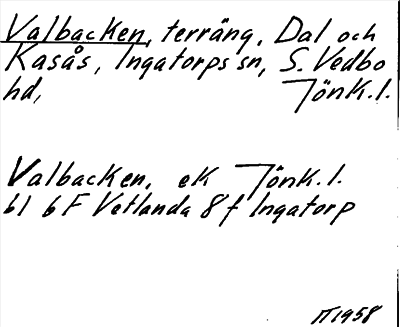 Valbacken, terräng, Dal och
Kasås, Ingatorps sn, S. Vedbo
hd, Jönk. l.
Valbacken, ek Jönk. l.
bl 6F Vetlanda 8 f Ingatorp
1958